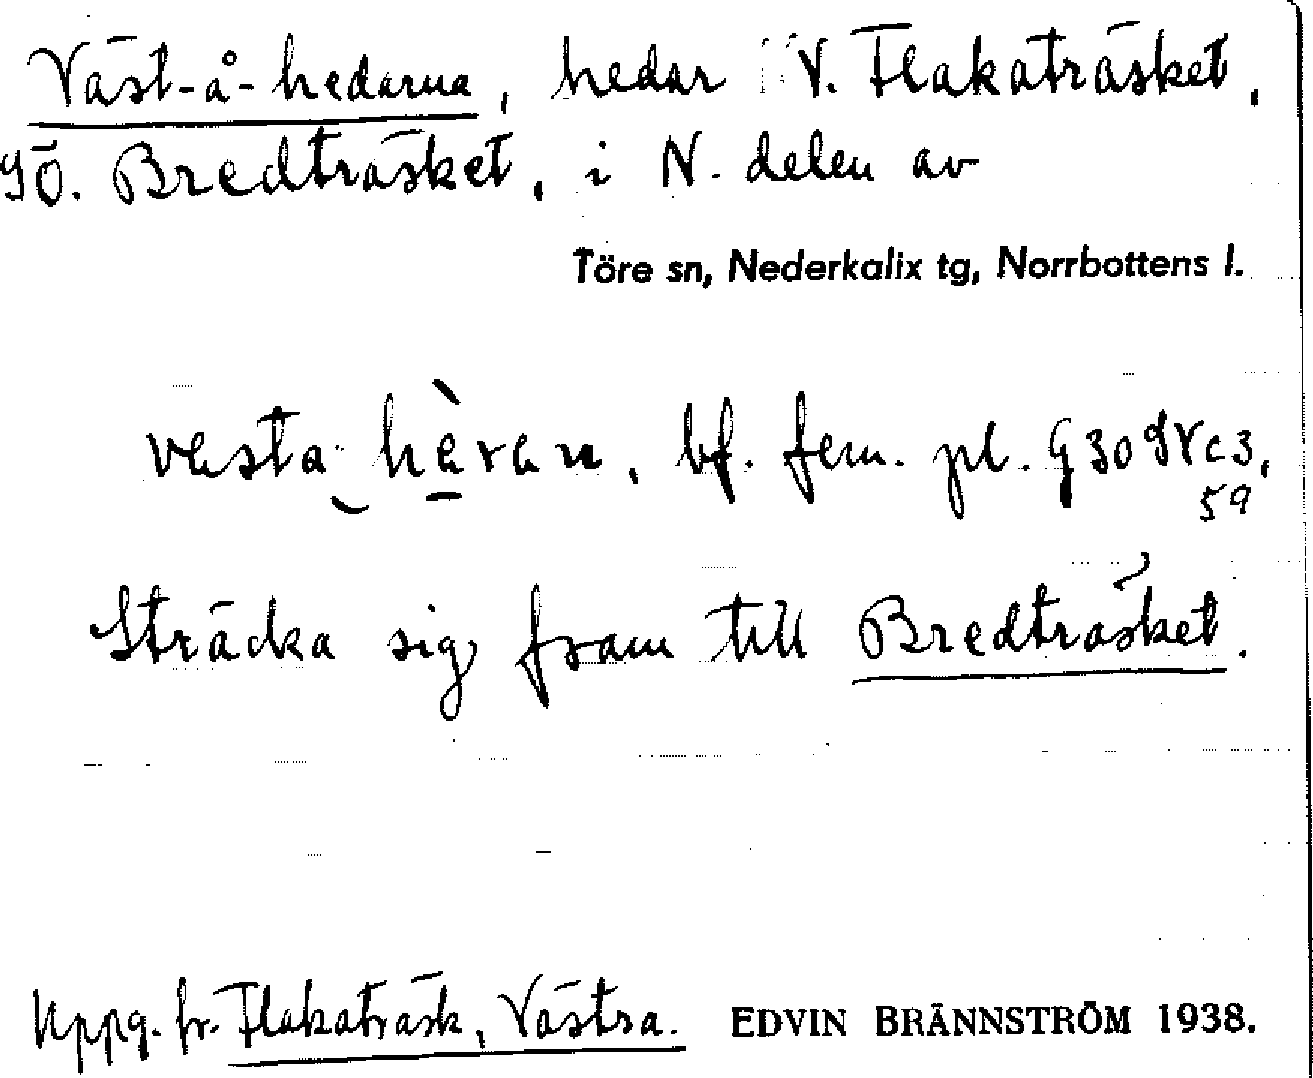 Väst-å-hedarna, hedar V. Flakaträsket,
SÖ. Bredträsket, i N. delen av
Töre sn, Nederkalix tg, Norrbottens l.
vesta hèran, bf. fem. pl. G30 IV c 3,
59
Sträcka sig fram till Bredträsket.
Uppg. fr. Flakaträsk, Västra. EDVIN BRÄNNSTRÖM 1938.